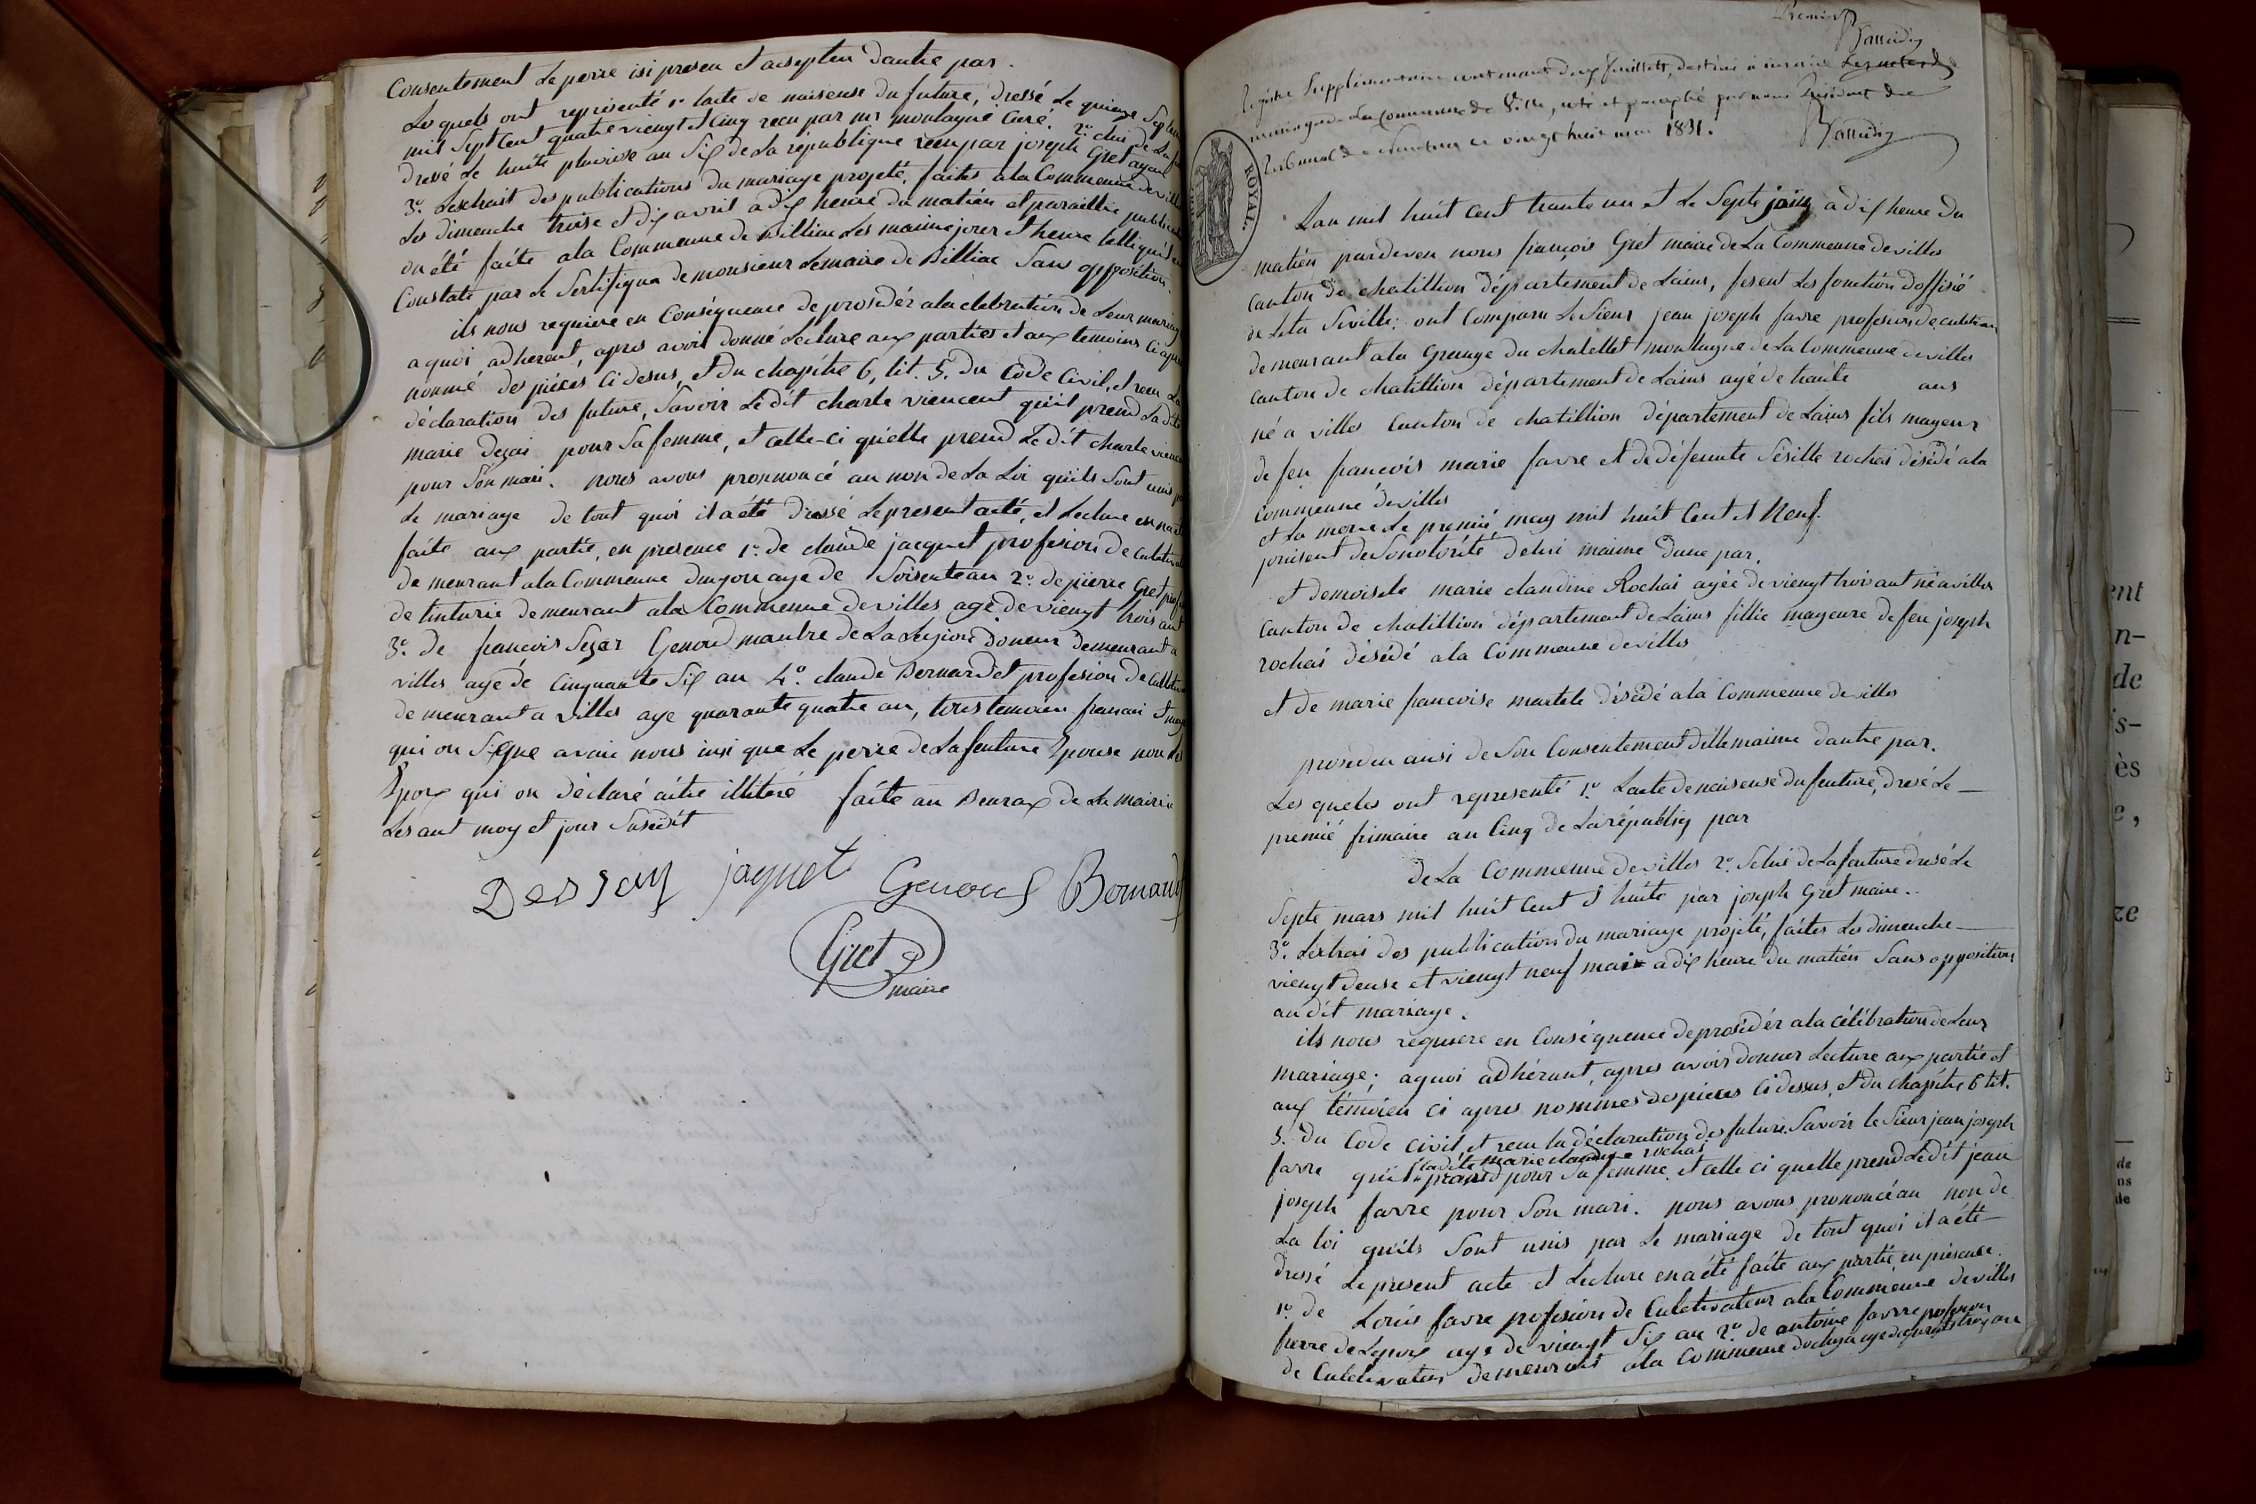 Consentement de perre isi presen et acsepten d'autre par.
Les quels ont représenté 1o lacte de naisense du future, dressé Le quinze Sep
mil Sept Cent quatre viengt et Cinq recu par mr montagne Curé. 2o clui de La
dressé Le huite pluviose an Six de La république recu par joseph Gret agent
3o Lextrait des publications du mariage projeté, faites a la Commeune de ville
Les dimenche troise et dix avril a dix heure du matién et paraillie publica
on été faite ala Commeune de Billiac Les maime jour et heure telle quil
Constate par Le Sertifiqua de monsieur Lemaire de Billiac Sans opposition.
ils nous requiere en Conséquence de prosédér ala clebration de Leur mariag
a quoi adherent, apres avoir donné Lecture aux parties et aux temoins Ci apre
nommé des piéces Ci desus, et du chapitre 6, tit. 5. du Code Civil, et recu La
déclaration des future, Savoir Le dit charle viencent qu'il prend La dite
marie deçai pour Sa femme, et celle-ci quelle prend Le dit charle vience
pour Son mari. nous avous pronnoncé au non de La Loi quils Sont unis p
Le mariage de tout quoi il a été dressé Le present acté, et Lecture en na
faite aux partie, en presence 1o de claude jacquet profesion de Culetiva
de meurant ala Commeune dugonaye de Soisenteau 2o de pierre Gret prof
de tinturie demeurant ala Commeune de villes age de viengt trois ant
3o de francois Sezar Genoud manbre de La Legion doneur demeurant a
villes agé de Cinquante Six an 4o. claude Bernardet profesion de Culletiva
de meurant a villes age quarante quatre an, tous temoin francai et may
qui on Signe avaic nous insi que Le perre de La feuture Epouse non Les
Epoux qui on déclaré aitre illiteré faite au Beurax de La mairie
Les ant moy et jour Susédit
Dessay jaquet Genoud Bernard
Gret
maire
Premier
Registre Supplémentaire contenant deux feuillets, destiné à inscrire Les actes de
mariage de La Commune de Ville, coté et paraphé par nous Président du
Tribunal de ce vingt huit mai 1831.
ROYAL
Lan mil huit Cent trante un et Le Septe join a dix heure du
matién pardeven nous françois Gret maire de La Commeune de villes
Canton de chatillion département de Lains, fesent Les fonction doffisié
de Léta Siville; ont Comparu Le Sieur jean joseph favre profesion de culetivateur
demeurant ala Grange du chatellet montagne de La Commeune de villes
canton de chatillion département de Lains agé de trante ans
né a villes Canton de chatillion département de Lains fils mageur
de feu francois marie favre et de défeunte Sésille rochai désédé ala
Commeune de villes
et La merre Le premié may mil huit Cent et Neuf.
jouisent de Sonotorité de lui maime dune par,
et demoisele marie claudine Rochai agée de viengt trois ant né a villes
Canton de chatillion département de Lains fillie mageure de feu joseph
rochai désédé ala Commeune de villes
et de marie francoise martele désédé ala Commeune de villes
proseden ausi de Son Consentement d'elle maime dautre par.
Les queles ont representé 1o Lacte de naisense du feuture, dresé Le
premié frimaire an Cinq de La républiq par
de La Commeune de villes 2o Selui de La feuture dresé Le
Septe mars mil huit Cent et huite par joseph Gret maire.
3o Lextrai des publication du mariage projété, faites Les dimenche
viengt deuse et viengt neuf mai a dix heure du matién Sans opposition
au dit mariage.
ils nous requiere en Conséquence de prosédér ala célébration de Leur
mariage; a quoi adhérant, apres avoir donner Lecture aux partie et
aux témoien ci apres nommés des pieces Ci dessus, et du chapitre 6 tit.
5. du Code civil, et recu la déclaration des future. Savoir le Sieur jean joseph
la dite marie claudine rochai
favre qu'il prand pour Sa femme, et celle ci quelle prend Le dit jean
joseph favre pour Son mari. nous avous prononcé au non de
La loi quils Sont unis par Le mariage de tout quoi il a été
dressé Le present acte et Lecture en a été faite aux partie en présence.
1o de Louis favre profesion de Culetivateur ala Commeune de villes
frerre de Lepoux age de viengt Six an 2o de antoine favre profesion
de Culetivateur demeurant ala Commeune